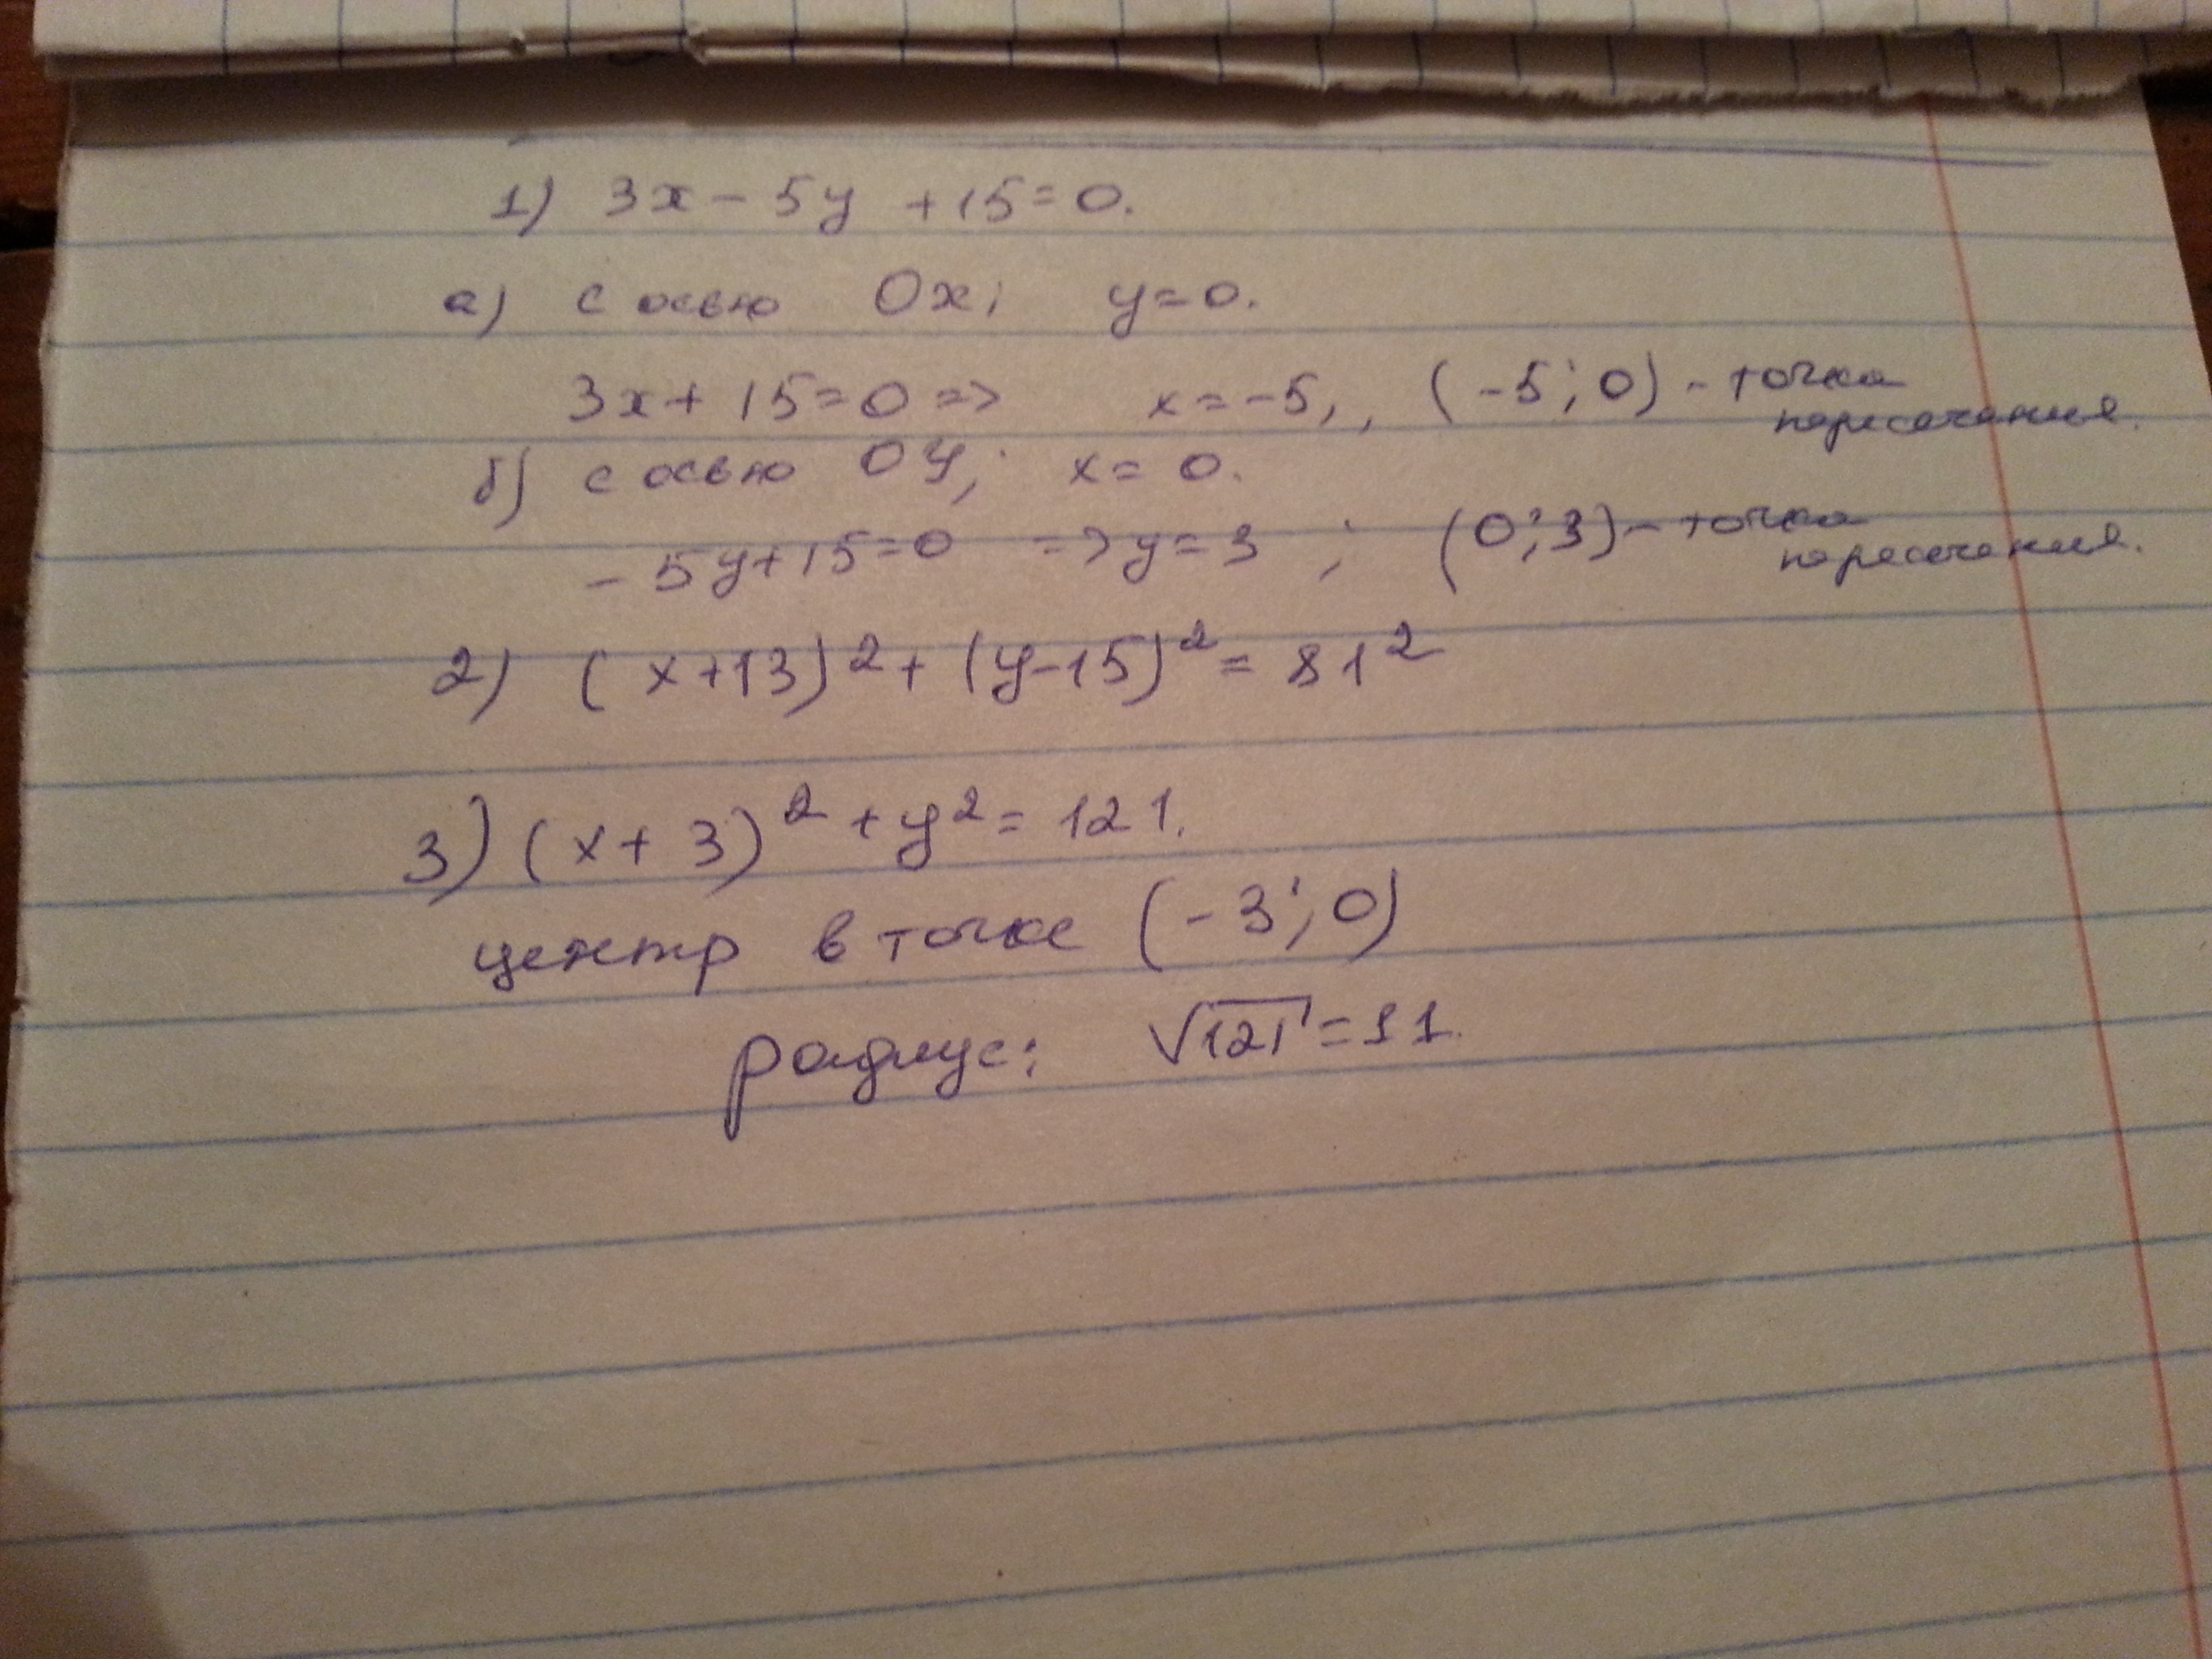 1) 3x - 5y + 15 = 0.
а) с осью Ox; y = 0.
3x + 15 = 0 => x = -5, , (-5; 0) - точка пересечения.
б) с осью OY; x = 0.
-5y + 15 = 0 => y = 3 ; (0; 3) - точка пересечения.
2) (x+13)² + (y-15)² = 81²
3) (x + 3)² + y² = 121.
центр в точке (-3; 0)
радиус: √121 = 11.